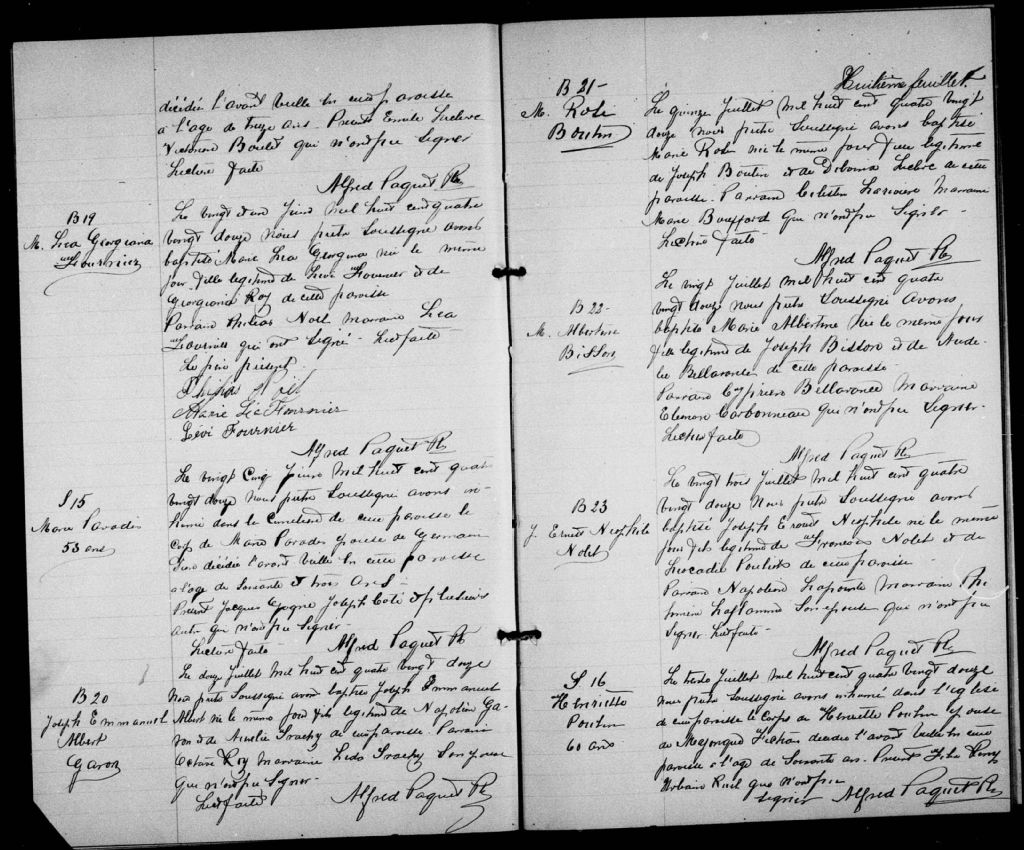 décédée l'avant veille en cette paroisse
à l'age de treize ans. Present Leclerc
Boulet qui n'ont pu signer
Lecture faite
Alfred Paquet Ptre
B 19
M. Lea Georgiana
Fournier
Le vingt et un Juin mil huit cent quatre
vingt douze nous pretre soussigné avons
baptisé Marie Lea Georgina née le même
jour fille legitime de Levi Fournier et de
Georgiana Roy de cette paroisse
Parrain Philéas Noël marraine Lea
Fournier qui ont signé - Lect faite
Le père présent
Marie Léa Fournier
Lévi Fournier
Alfred Paquet Ptre
S 15
Marie Paradis
53 ans
Le vingt cinq Juin mil huit cent quatre
vingt douze nous pretre soussigné avons in-
humé dans le cimetière de cette paroisse le
corps de Marie Paradis épouse de Germain
décédée l'avant veille en cette paroisse
à l'age de et trois ans -
Present Jacques Gagne Joseph Coté et plusieurs
autres qui n'ont pu signer -
Lecture faite Alfred Paquet Ptre
B 20
Joseph Emmanuel
Albert
Garon
Le douze Juillet mil huit cent quatre vingt douze
nous pretre soussigné avons baptisé Joseph Emmanuel
Albert né le même jour fils legitime de Napoléon Ga-
ron et de de cette paroisse. Parrain
Octave Roy marraine son épouse
qui n'ont pu signer -
Lect faite Alfred Paquet Ptre
Huitième feuillet
B 21 -
M. Rose
Boutin
Le quinze Juillet mil huit cent quatre vingt
douze nous pretre soussigné avons baptisé
Marie Rose née le même jour fille legitime
de Joseph Boutin et de de cette
paroisse. Parrain Celestin marraine
Marie Bouffard qui n'ont pu signer -
Lecture faite -
Alfred Paquet Ptre
B 22 -
M. Albertine
Bisson
Le vingt Juillet mil huit cent quatre
vingt douze nous pretre soussigné avons
baptisé Marie Albertine née le même jour
fille legitime de Joseph Bisson et de
Bellavance de cette paroisse -
Parrain Cyprien Bellavance marraine
Eleonore Carbonneau qui n'ont pu signer -
Lecture faite
Alfred Paquet Ptre
B 23
J. Ernest Neophile
Nolet
Le vingt trois Juillet mil huit cent quatre
vingt douze nous pretre soussigné avons
baptisé Joseph Ernest Neophile né le même
jour fils legitime de François Nolet et de
Leocadie Pouliot de cette paroisse -
Parrain Napoléon Lapointe marraine Phi-
lomène Laflamme son épouse qui n'ont pu
signer Lect faite -
Alfred Paquet Ptre
S 16
Henriette
60 ans
Le Juillet mil huit cent quatre vingt douze
nous pretre soussigné avons inhumé dans l'eglise
de cette paroisse le corps de Henriette épouse
de décédée l'avant veille en cette
paroisse à l'age de soixante ans. Present
qui n'ont pu
signer Alfred Paquet Ptre